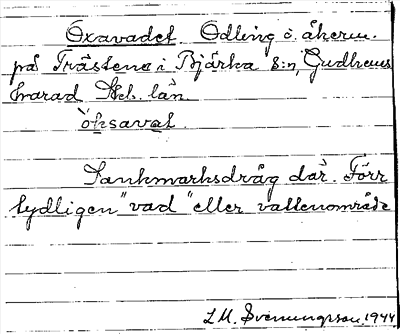 Oxavadet. Odling o. åkerm.
på Trästena i Bjärka s:n, Gudhems
härad Skb. län.
òksavat.
Sankmarksdråg där. Förr
tydligen "vad" eller vattenområde
L.M. Svenungsson, 1944